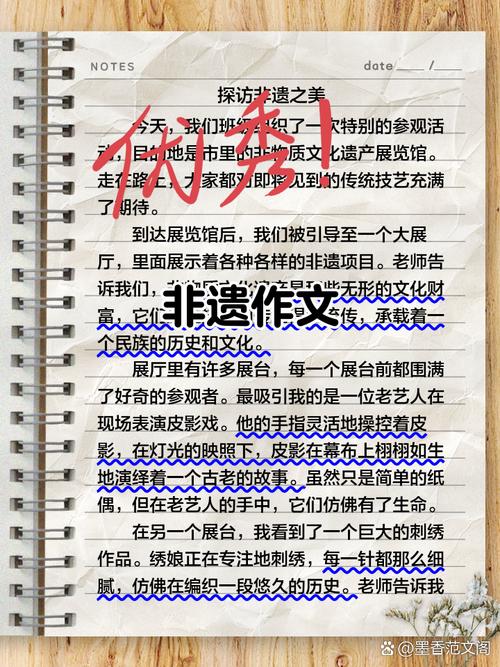 NOTES
date____/__
探访非遗之美
今天，我们班级组织了一次特别的参观活
动，目的地是市里的非物质文化遗产展览馆。
走在路上，大家都对即将见到的传统技艺充满
了期待。
优秀！
到达展览馆后，我们被引导至一个大展
厅，里面展示着各种各样的非遗项目。老师告
诉我们，
些无形的文化财
非遗作文
富，它们
传，承载着一
个民族的历史和文化。
展厅里有许多展台，每一个展台前都围满
了好奇的参观者。最吸引我的是一位老艺人在
现场表演皮影戏。他的手指灵活地操控着皮
影，在灯光的映照下，皮影在幕布上栩栩如生
地演绎着一个古老的故事。虽然只是简单的纸
偶，但在老艺人的手中，它们仿佛有了生命。
在另一个展台，我看到了一个巨大的刺绣
作品。绣娘正在专注地刺绣，每一针都那么细
腻，仿佛在编织一段悠久的历史。老师告诉我
墨香范文阁